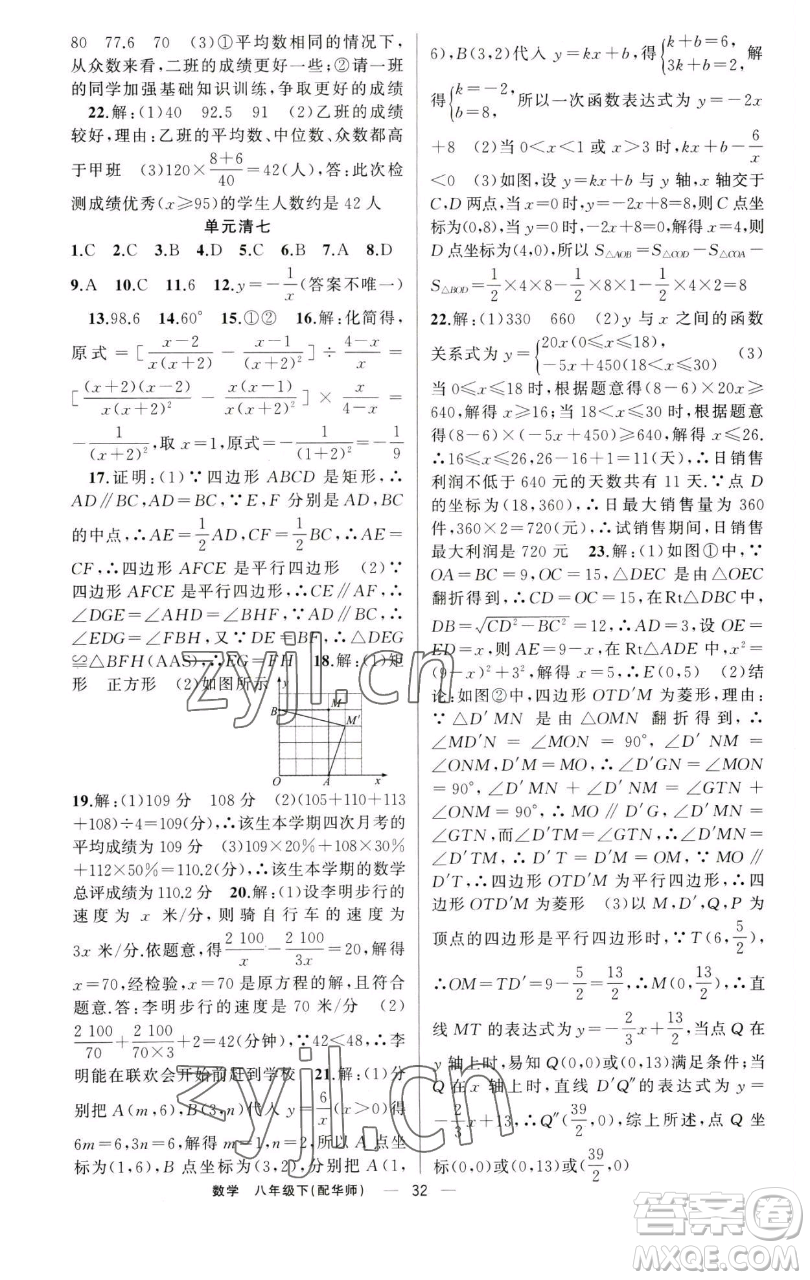 80　77.6　70　(3)①平均数相同的情况下,
从众数来看,二班的成绩更好一些;②请一班
的同学加强基础知识训练,争取更好的成绩
22.解:(1)40　92.5　91　(2)乙班的成绩
较好,理由:乙班的平均数、中位数、众数都高
于甲班　(3)120×(8+6)/40=42(人),答:此次检
测成绩优秀(x≥95)的学生人数约是 42 人
单元清七
1.C　2.C　3.B　4.D　5.C　6.B　7.A　8.D
9.A　10.C　11.6　12.y=-1/x(答案不唯一)
13.98.6　14.60°　15.①②　16.解:化简得,
原式=[(x-2)/(x(x+2)) - (x-1)/(x(x+2)²)]÷(4-x)/x=
[((x+2)(x-2))/(x(x+2)²) - (x(x-1))/(x(x+2)²)]×x/(4-x)=
-1/(x+2)²,取 x=1,原式=-1/(1+2)²=-1/9
17.证明:(1)∵四边形 ABCD 是矩形,∴
AD∥BC,AD=BC,∵E,F 分别是 AD,BC
的中点,∴AE=1/2AD,CF=1/2BC,∴AE=
CF,∴四边形 AFCE 是平行四边形　(2)∵
四边形 AFCE 是平行四边形,∴CE∥AF,∴
∠DGE=∠AHD=∠BHF,∵AD∥BC,∴
∠EDG=∠FBH,又∵DE=BF,∴△DEG
≌△BFH(AAS),∴EG=FH　18.解:(1)矩
形　正方形　(2)如图所示
y
B
M
M′
O
A
x
19.解:(1)109 分　108 分　(2)(105+110+113
+108)÷4=109(分),∴该生本学期四次月考的
平均成绩为 109 分　(3)109×20%+108×30%
+112×50%=110.2(分),∴该生本学期的数学
总评成绩为 110.2 分　20.解:(1)设李明步行的
速度为 x 米/分,则骑自行车的速度为
3x 米/分.依题意,得2 100/x-2 100/3x=20,解得
x=70,经检验,x=70 是原方程的解,且符合
题意.答:李明步行的速度是 70 米/分　(2)
2 100/70+2 100/(70×3)+2=42(分钟),∵42<48,∴李
明能在联欢会开始前赶到学校　21.解:(1)分
别把 A(m,6),B(3,n)代入 y=6/x(x>0)得
6m=6,3n=6,解得 m=1,n=2,所以 A 点坐
标为(1,6),B 点坐标为(3,2),分别把 A(1,
6),B(3,2)代入 y=kx+b,得{k+b=6, 3k+b=2, 解
得{k=-2, b=8, 所以一次函数表达式为 y=-2x
+8　(2)当 0<x<1 或 x>3 时,kx+b-6/x
<0　(3)如图,设 y=kx+b 与 y 轴,x 轴交于
C,D 两点,当 x=0 时,y=-2x+8=8,则 C 点
坐标为(0,8),当 y=0 时,-2x+8=0,解得 x=4,则
D 点坐标为(4,0),所以 S△AOB=S△COD-S△COA-
S△BOD=1/2×4×8-1/2×8×1-1/2×4×2=8
22.解:(1)330　660　(2)y 与 x 之间的函数
关系式为 y={20x(0≤x≤18) -5x+450(18<x≤30)　(3)
当 0≤x≤18 时,根据题意得(8-6)×20x≥
640,解得 x≥16;当 18<x≤30 时,根据题意
得(8-6)×(-5x+450)≥640,解得 x≤26.
∴16≤x≤26,∴26-16+1=11(天),∴日销售
利润不低于 640 元的天数共有 11 天.∵点 D
的坐标为(18,360),∴日最大销售量为 360
件,360×2=720(元),∴试销售期间,日销售
最大利润是 720 元　23.解:(1)如图①中,∵
OA=BC=9,OC=15,△DEC 是由△OEC
翻折得到,∴CD=OC=15,在Rt△DBC 中,
DB=√(CD²-BC²)=12,∴AD=3,设 OE=
ED=x,则 AE=9-x,在 Rt△AED 中,x²=
(9-x)²+3²,解得 x=5,∴E(0,5)　(2)结
论:如图②中,四边形 OTD′M 为菱形,理由:
∵△D′MN 是由△OMN 翻折得到,
∴∠MD′N=∠MON=90°,∠D′NM=
∠ONM,D′M=OM,∴∠D′GN=∠MON
=90°,∠OMN+∠ONM=90°,∠D′NM+
∠GTN=90°,∴MO∥D′G,∴∠OMN=
∠GTN,而∠D′TM=∠GTN,∴∠OMN=
∠D′TM,∴D′T=MD′,∴OM=D′T,OM∥
D′T,∴四边形 OTD′M 为平行四边形,∴四
边形 OTD′M 为菱形　(3)以 M,D′,Q,P 为
顶点的四边形是平行四边形时,∵T(6,5/2),
∴OM=TD′=9-5/2=13/2,∴M(0,13/2),∴直
线 MT 的表达式为 y=-2/3x+13/2,当点 Q 在
y 轴上时,易知 Q(0,0)或(0,13)满足条件;当
Q 在 x 轴上时,直线 D′Q″的表达式为 y=
-2/3x+13,∴Q″(39/2,0),综上所述,点 Q 坐
标为(0,0)或(0,13)或(39/2,0)
数学　八年级下(配华师)　— 32 —
zyjl.cn
zyjl.cn
答案卷
MXQE.COM